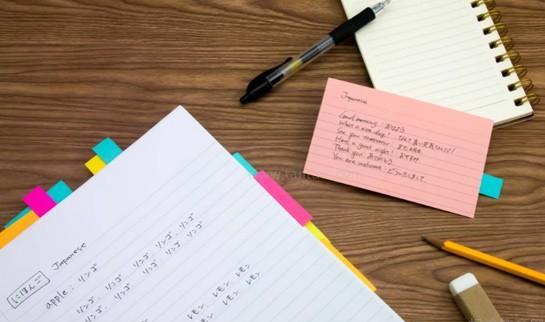 Japanese
Good morning : おはよう
What a nice day!
See you tomorrow : また明日
Have a good night! : おやすみ
Thank you : ありがとう
You are welcome : どういたしまして
にほんご Japanese
apple : リンゴ
リンゴ リンゴ リンゴ リンゴ
リンゴ リンゴ リンゴ リンゴ
レモン レモン レモン
レモン レモン